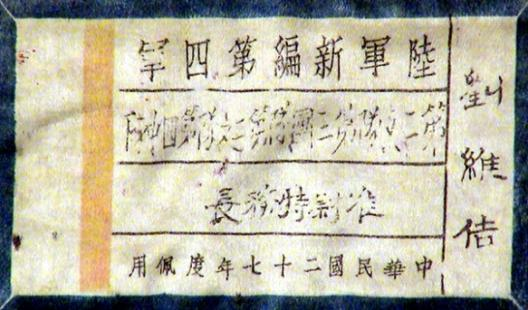 維佶
陸軍新編第四軍
第二支隊第三團第二第四
准尉特務長
中華民國二十七年度佩用